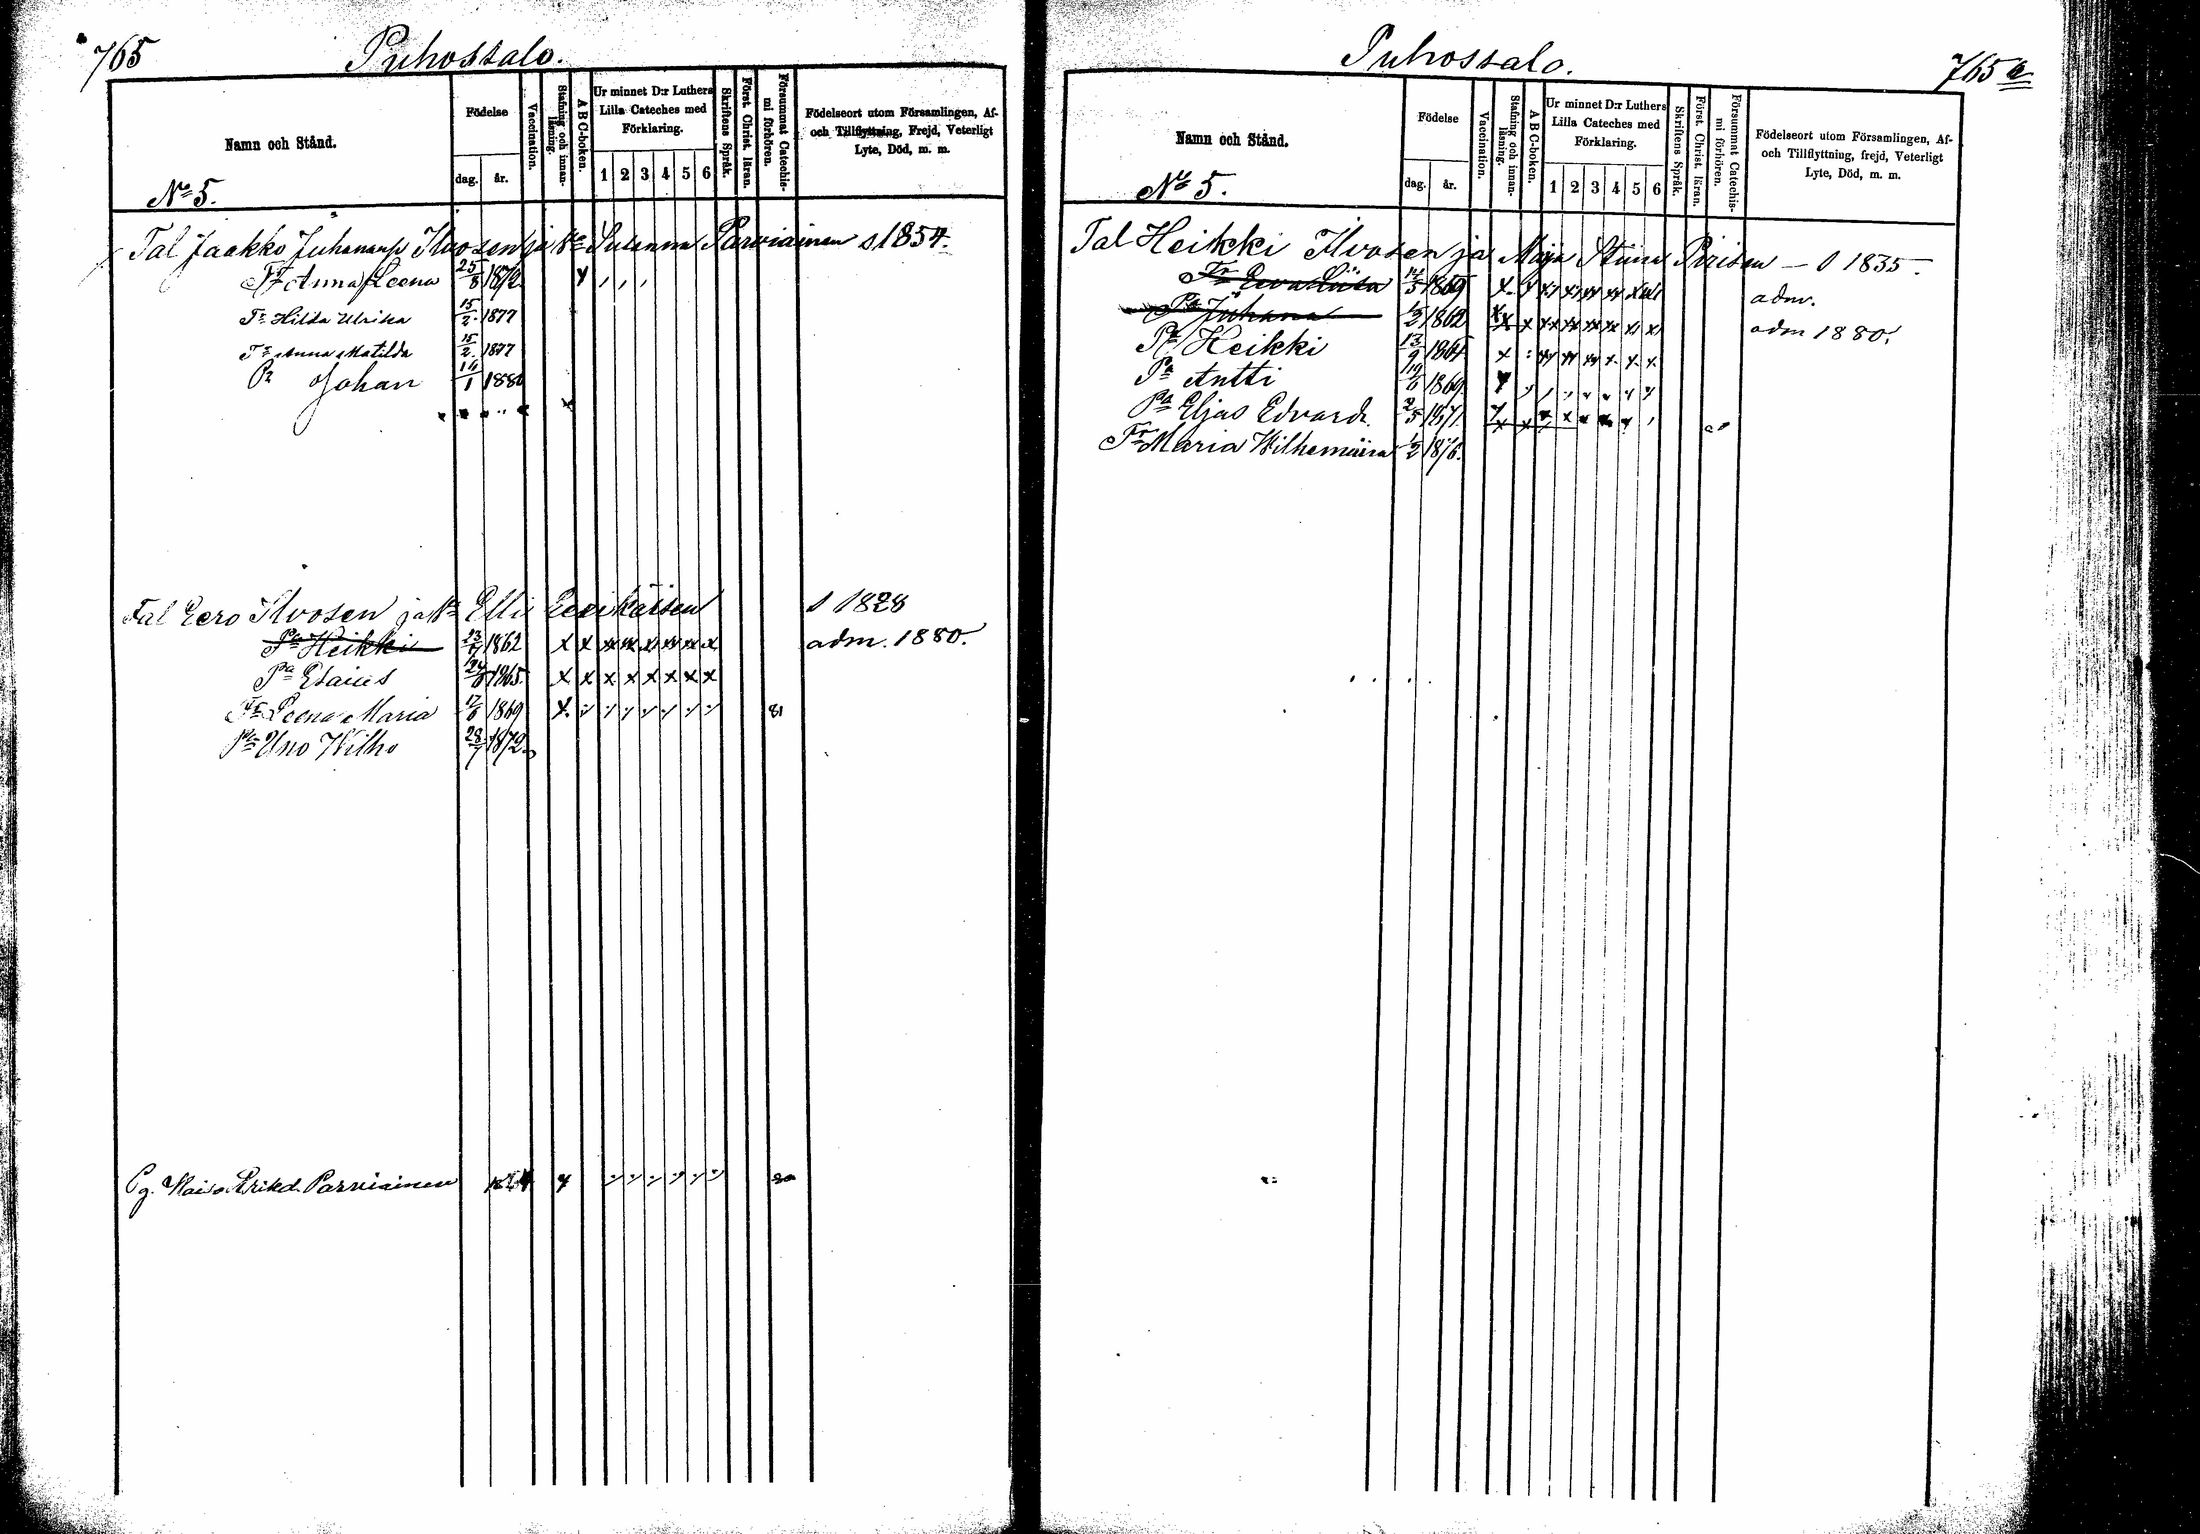 765
Puhossalo.
Namn och Stånd.
Födelse
dag.
år.
Vaccination.
Stafning och innanläsning.
A B C-boken.
Ur minnet D:r Luthers
Lilla Cateches med
Förklaring.
1 2 3 4 5 6
Skriftens Språk.
Först. Christ. läran.
Försummat Catechismi förhören.
Födelseort utom Församlingen, Af-
och Tillflyttning, Frejd, Veterligt
Lyte, Död, m. m.
No 5.
Tal Jaakko Ilvosen ja Susanna Parviainen s 1854.
Tr Anna Leena 25/8 1872 x
Tr Hilda Ulrika 15/2 1877
Tr Anna Matilda 15/2 1877
Pa Johan 1/1 1880
Tal Eero Ilvosen ja Elli s 1828
Pa Heikki 23/7 1862 x x xx xx xx xx x adm. 1880.
Pa 1865 x x x x x x x x
Tr Leena Maria 17/6 1869 x 81
Pa Uno Wilho 28/7 1872
Pg. Parviainen
Puhossalo.
765 a
Namn och Stånd.
Födelse
dag.
år.
Vaccination.
Stafning och innanläsning.
A B C-boken.
Ur minnet D:r Luthers
Lilla Cateches med
Förklaring.
1 2 3 4 5 6
Skriftens Språk.
Först. Christ. läran.
Försummat Catechismi förhören.
Födelseort utom Församlingen, Af-
och Tillflyttning, frejd, Veterligt
Lyte, Död, m. m.
No 5.
Tal Heikki Ilvosen ja Maija Stiina Piirisen — s 1835.
Tr Eeva Liisa adm.
Pa Juhana 1/2 1862 adm 1880.
Pa Heikki 13/9 1864
Pa Antti 1869
Pa Eljas Edvard 2/5 1871
Tr Maria Wilhemiina 1/2 1876.